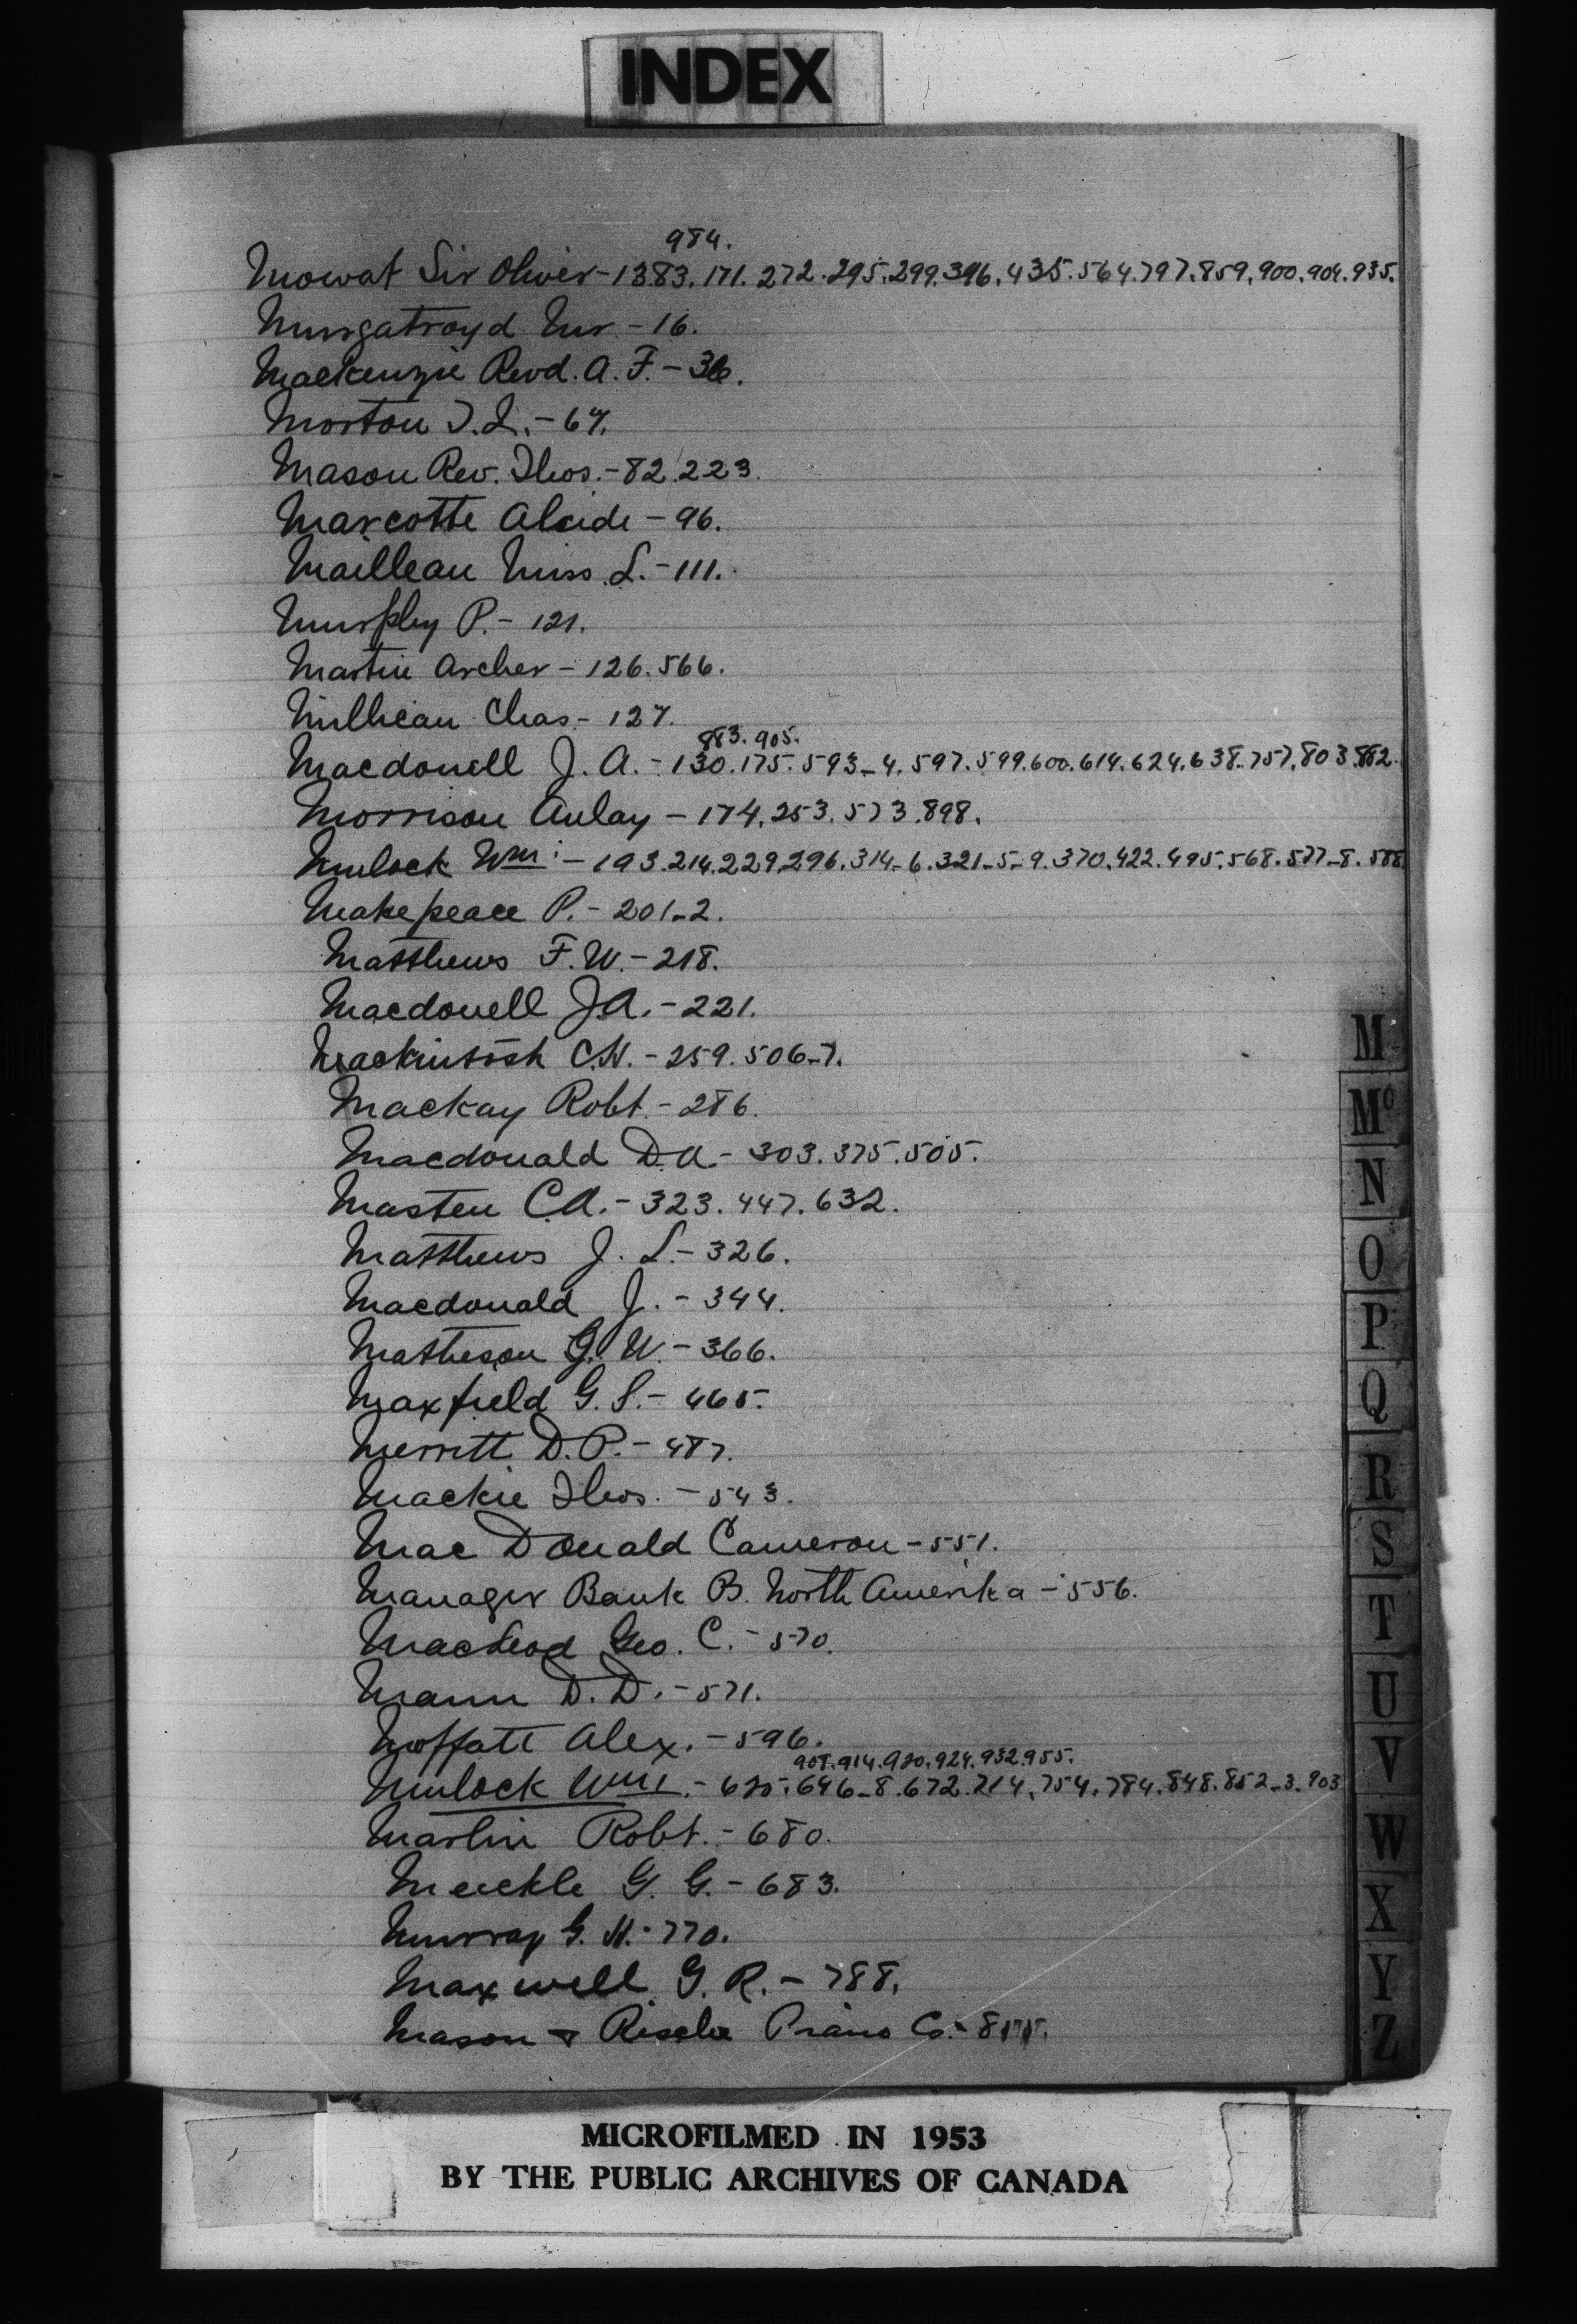 INDEX
984.
Mowat Sir Oliver-1383.171.272.295.299.396.435.564.797.859.900.904.935.
Murgatroyd Mr - 16.
Mackenzie Revd. A. F. - 36.
Morton T.L. - 67.
Mason Rev. Thos. - 82.223.
Marcotte Alcide - 96.
Mailleau Miss L. - 111.
Murphy P. - 121.
Martin Archer - 126.566.
Millican Chas - 127.
883.905.
Macdonell J. A. - 130.175.593-4.597.599.600.614.624.638.757.803.882.
Morrison Aulay - 174.253.573.898.
Mulock Wm: - 193.214.229.296.314-6.321-5-9.370.422.495.568.577-8.588.
Makepeace P. - 201-2.
Matthews F.W. - 218.
Macdonell J.A. - 221.
Mackintosh C.H. - 259.506-7.
Mackay Robt. - 286.
Macdonald D.A. - 303.375.505.
Masten C.A. - 323.447.632.
Matthews J. L. - 326.
Macdonald J. - 344.
Matheson G. W. - 366.
Maxfield G. S. - 465.
Merritt D.P. - 487.
Mackie Thos. - 543.
Mac Donald Cameron - 551.
Manager Bank B. North Amerika - 556.
MacLeod Geo. C. - 570.
Mann D. D. - 571.
Moffatt Alex. - 596.
908.914.920.924.932.955.
Mulock Wm. - 625.646-8.672.714.754.784.848.852-3.903
Martin Robt. - 680.
Meickle G. G. - 683.
Murray G. H. - 770.
Maxwell G. R. - 788.
Mason & Risch Piano Co. -
M
Mc
N
O
P
Q
R
S
T
U
V
W
X
Y
Z
MICROFILMED IN 1953
BY THE PUBLIC ARCHIVES OF CANADA